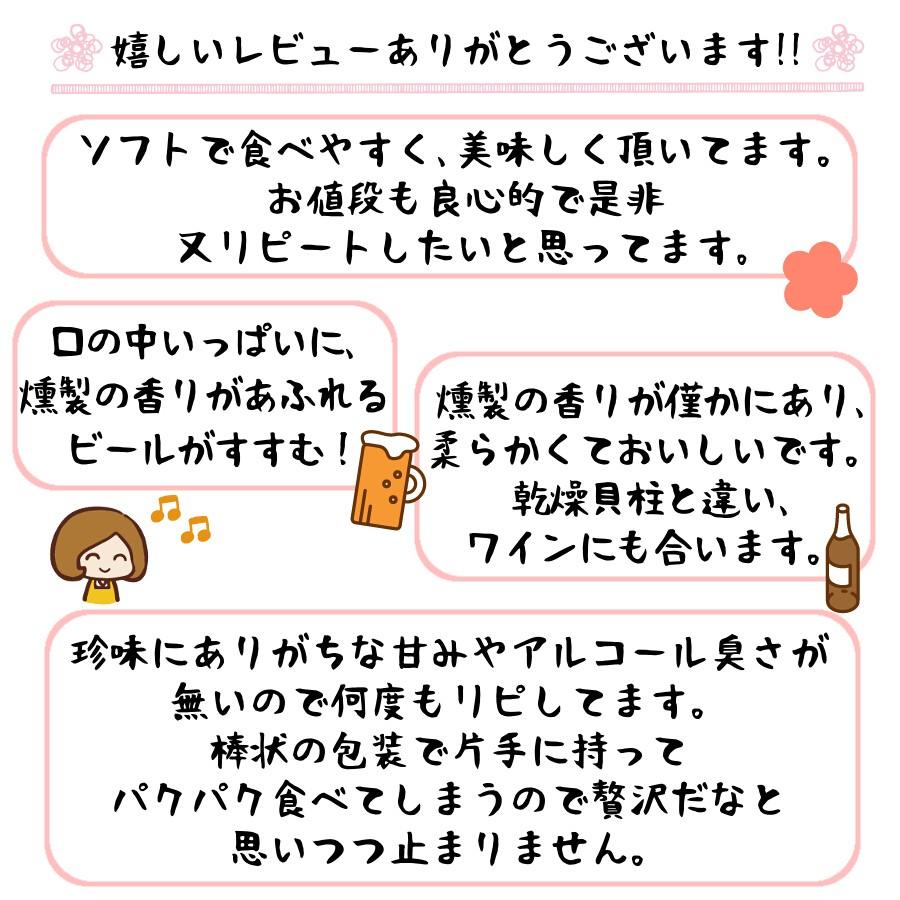 嬉しいレビューありがとうございます!!
ソフトで食べやすく、美味しく頂いてます。
お値段も良心的で是非
又リピートしたいと思ってます。
口の中いっぱいに、
燻製の香りがあふれる
ビールがすすむ！
燻製の香りが僅かにあり、
柔らかくておいしいです。
乾燥貝柱と違い、
ワインにも合います。
珍味にありがちな甘みやアルコール臭さが
無いので何度もリピしてます。
棒状の包装で片手に持って
パクパク食べてしまうので贅沢だなと
思いつつ止まりません。